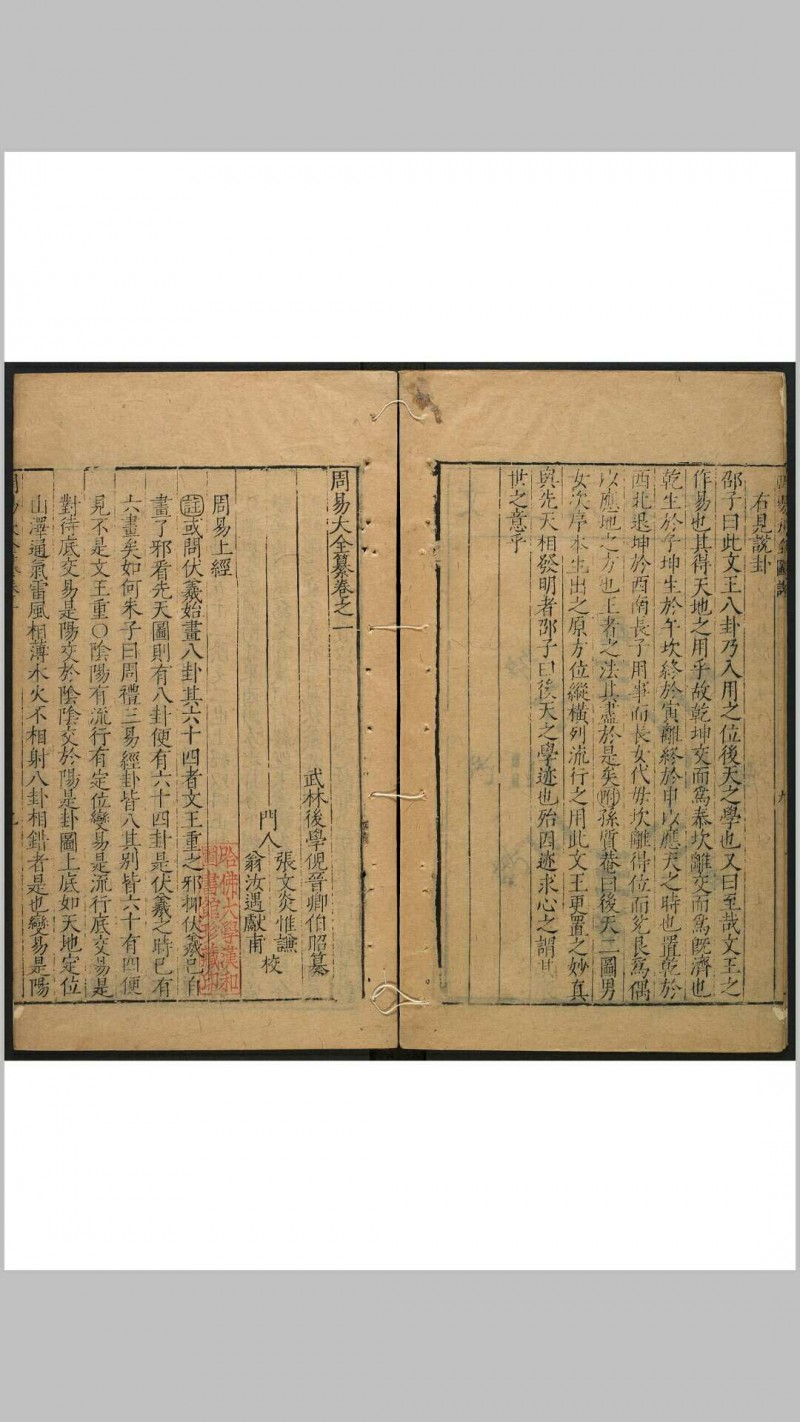 右見說卦
邵子曰此文王八卦乃入用之位後天之學也又曰至哉文王之
作易也其得天地之用乎故乾坤交而爲泰坎離交而爲旣濟也
乾生於子坤生於午坎終於寅離終於申以應天之時也置乾於
西北退坤於西南長子用事而長女代母坎離得位而兌艮爲偶
以應地之方也王者之法其盡於是矣附孫質菴曰後天二圖男
女次序本生出之原方位縱橫列流行之用此文王更置之妙真
與先天相發明者邵子曰後天之學迹也殆因迹求心之謂其
世之意乎
周易大全纂卷之一
武林後學倪晉卿伯昭纂
門人
張文炎惟謙
翁汝遇獻甫
校
周易上經
註或問伏羲始畫八卦其六十四者文王重之邪抑伏羲已自
畫了邪看先天圖則有八卦便有六十四卦是伏羲之時已有
六畫矣如何朱子曰周禮三易經卦皆八其別皆六十有四便
見不是文王重○陰陽有流行有定位變易是流行底交易是
對待底交易是陽交於陰陰交於陽是卦圖上底如天地定位
山澤通氣雷風相薄水火不相射八卦相錯者是也變易是陽
哈佛大學漢和
圖書館珍藏印